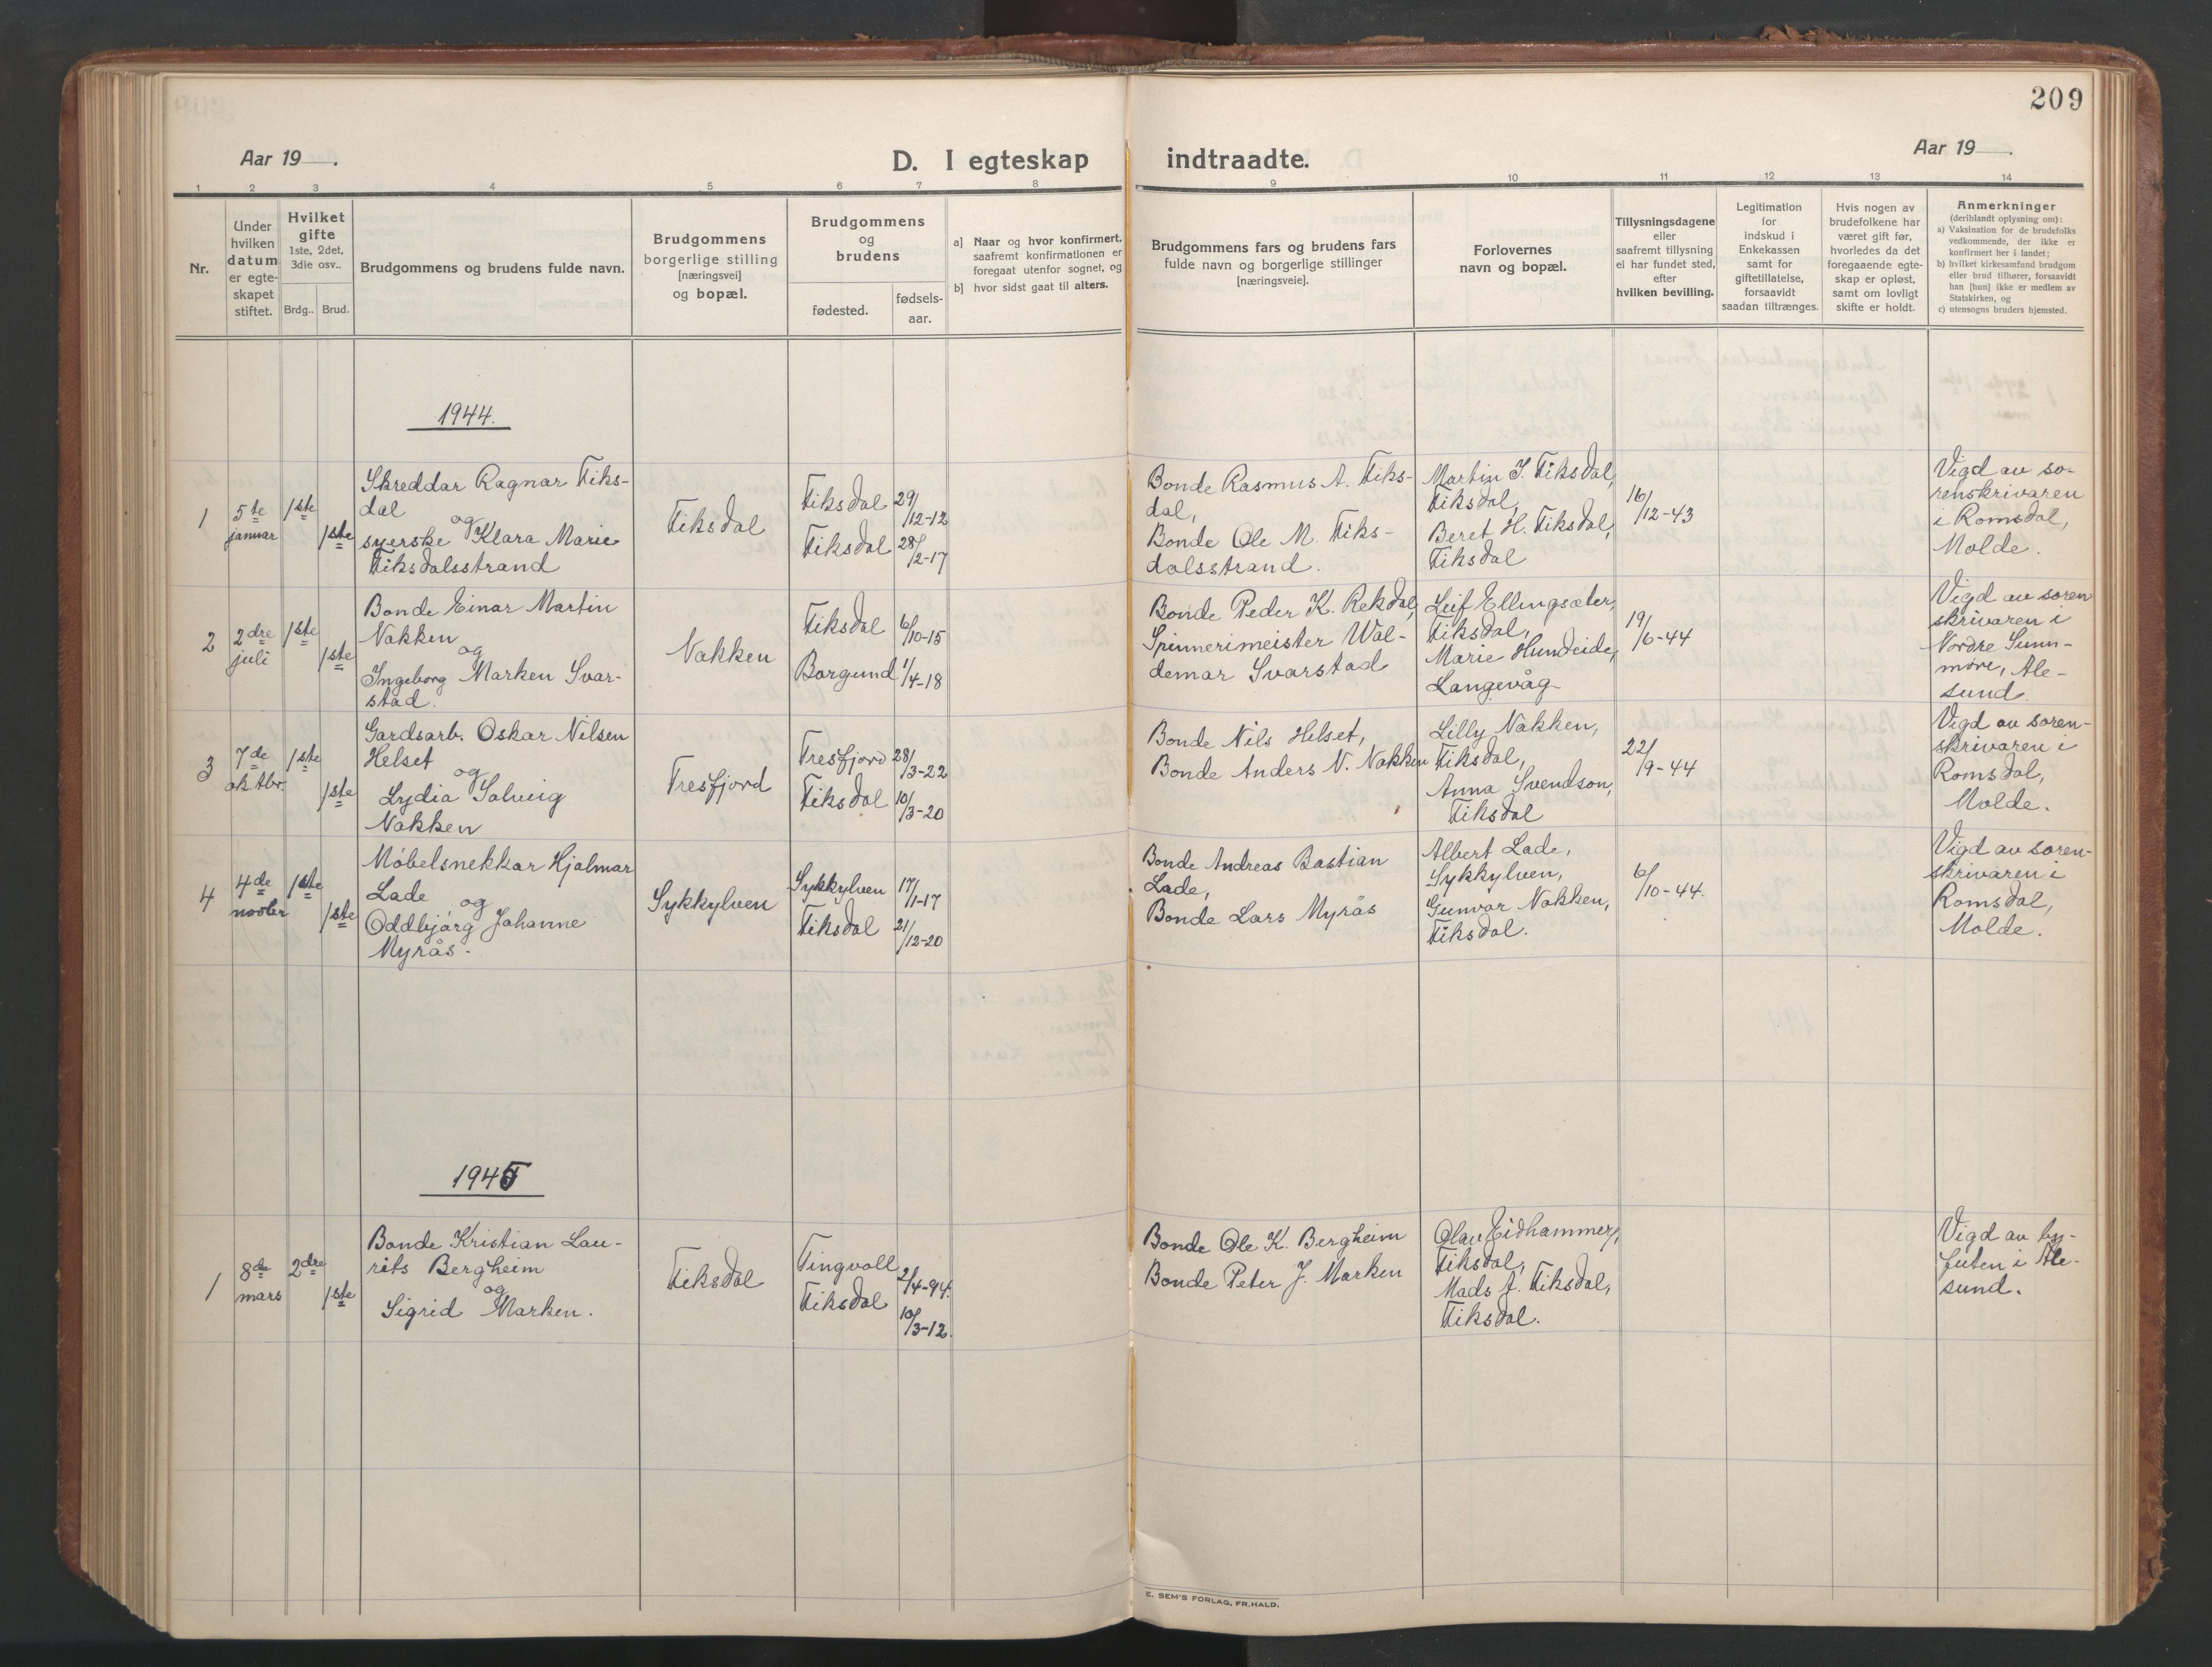 209
Aar 19 .
D. I egteskap indtraadte.
Aar 19 .
1 2 3 4 5 6 7 8 9 10 11 12 13 14
Nr.
Under
hvilken
datum
er egte-
skapet
stiftet.
Hvilket
gifte
1ste, 2det,
3die osv..
Brdg.. Brud.
Brudgommens og brudens fulde navn.
Brudgommens
borgerlige stilling
[næringsvei]
og bopæl.
Brudgommens
og
brudens
fødested.
fødsels-
aar.
a] Naar og hvor konfirmert,
saafremt konfirmationen er
foregaat utenfor sognet, og
b] hvor sidst gaat til alters.
Brudgommens fars og brudens fars
fulde navn og borgerlige stillinger
[næringsveie].
Forlovernes
navn og bopæl.
Tillysningsdagene
eller
saafremt tillysning
ei har fundet sted,
efter
hvilken bevilling.
Legitimation
for
indskud i
Enkekassen
samt for
giftetillatelse,
forsaavidt
saadan tiltrænges.
Hvis nogen av
brudefolkene har
været gift før,
hvorledes da det
foregaaende egte-
skap er opløst,
samt om lovligt
skifte er holdt.
Anmerkninger
(deriblandt oplysning om):
a) Vaksination for de brudefolks
vedkommende, der ikke er
konfirmert her i landet;
b) hvilket kirkesamfund brudgom
eller brud tilhører, forsaavidt
han [hun] ikke er medlem av
Statskirken, og
c) utensogns bruders hjemsted.
1944.
1
5te
januar
1ste
1ste
Skreddar Ragnar Tiks-
dal
og
syerske Klara Marie
Tiksdalsstrand
Tiksdal
Tiksdal 29/12-12
Tiksdal 28/2-17
Bonde Rasmus A. Tiks-
dal,
Bonde Ole M. Tiks-
dalsstrand.
Martin I. Tiksdal,
Tiksdal,
Beret H. Tiksdal,
Tiksdal
16/12-43
Vigd av so-
renskrivaren
i Romsdal,
Molde.
2
2dre
juli
1ste
1ste
Bonde Einar Martin
Nakken
og
Ingeborg Marken Svar-
stad.
Nakken
Tiksdal 6/10-15
Borgund 1/4-18
Bonde Peder K. Rekdal,
Spinnerimeister Wal-
demar Svarstad
Leif Ellingsæter,
Tiksdal,
Marie Hundeide,
Langevåg
19/6-44
Vigd av soren
skrivaren i
Nordre Sunn-
møre, Åle-
sund.
3
7de
oktbr.
1ste
1ste
Gardsarb. Oskar Nilsen
Helset
og
Lydia Solveig
Nakken
Tresfjord
Tresfjord 28/3-22
Tiksdal 10/3-20
Bonde Nils Helset,
Bonde Anders N. Nakken
Lilly Nakken,
Tiksdal,
Anna Svendson,
Tiksdal
22/9-44
Vigd av soren-
skrivaren i
Romsdal,
Molde.
4
4de
novbr
1ste
1ste
Møbelsnekkar Hjalmar
Lade
og
Oddbjørg Johanne
Myrås.
Sykkylven
Sykkylven 17/1-17
Tiksdal 21/12-20
Bonde Andreas Bastian
Lade,
Bonde Lars Myrås
Albert Lade,
Sykkylven,
Gunvor Nakken,
Tiksdal.
6/10-44.
Vigd av soren-
skrivaren i
Romsdal,
Molde.
1945
1
8de
mars
2dre
1ste
Bonde Kristian Lau-
rits Bergheim
og
Sigrid Marken.
Tiksdal
Tingvoll 2/4-94.
Tiksdal 10/3-12.
Bonde Ole K. Bergheim
Bonde Peter J. Marken
Olav Eidhammer,
Tiksdal,
Mads J. Tiksdal,
Tiksdal.
Vigd av by-
futen i Åle-
sund.
E. SEM'S FORLAG, FR.HALD.